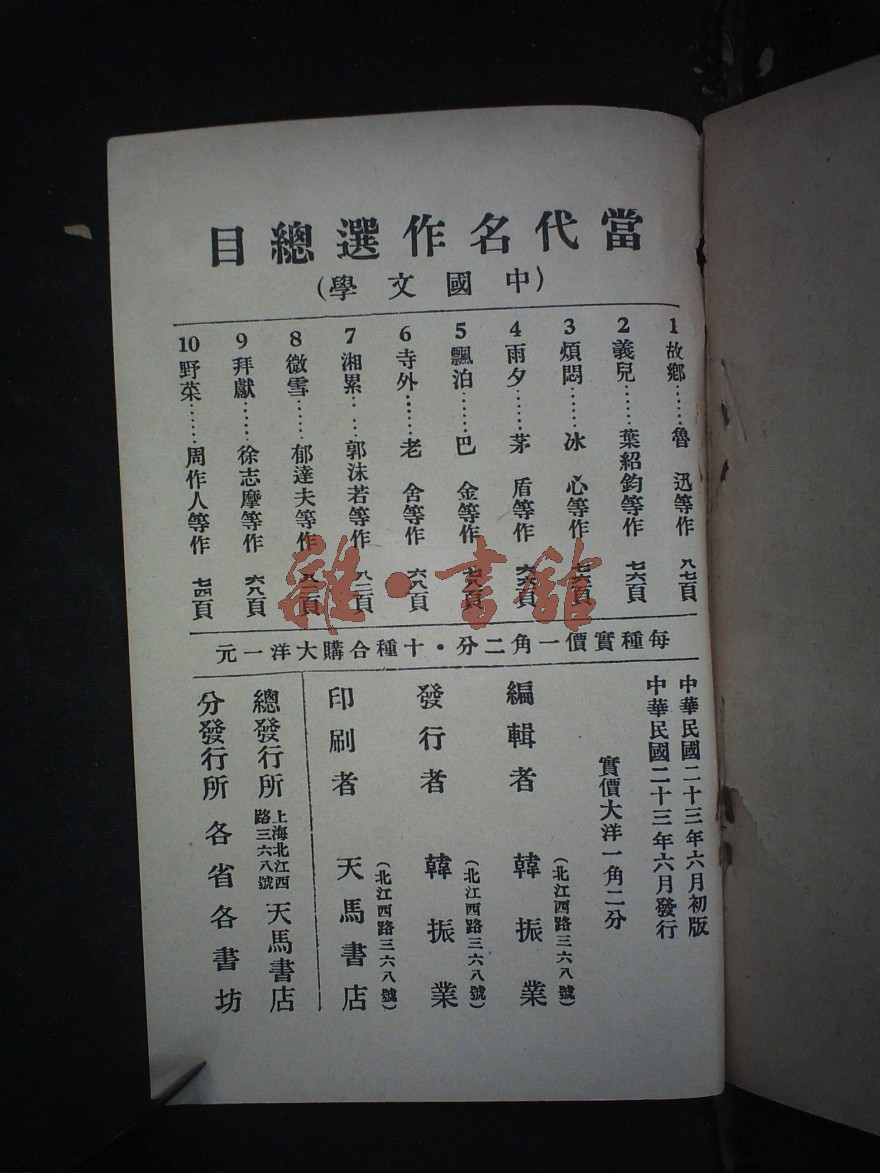 當代名作選總目
(中國文學)
1 故鄉……魯 迅等作 八七頁
2 義兒……葉紹鈞等作 七六頁
3 煩悶……冰 心等作 七六頁
4 雨夕……茅 盾等作
5 飄泊……巴 金等作 七八頁
6 寺外……老 舍等作 六八頁
7 湘累……郭沫若等作 八二頁
8 微雪……郁達夫等作
9 拜獻……徐志摩等作 六八頁
10 野菜……周作人等作 七四頁
每種實價一角二分·十種合購大洋一元
中華民國二十三年六月初版
中華民國二十三年六月發行
實價大洋一角二分
編輯者 韓振業
(北江西路三六八號)
發行者 韓振業
(北江西路三六八號)
印刷者 天馬書店
(北江西路三六八號)
總發行所 上海北江西路三六八號 天馬書店
分發行所 各省各書坊
雜·書館